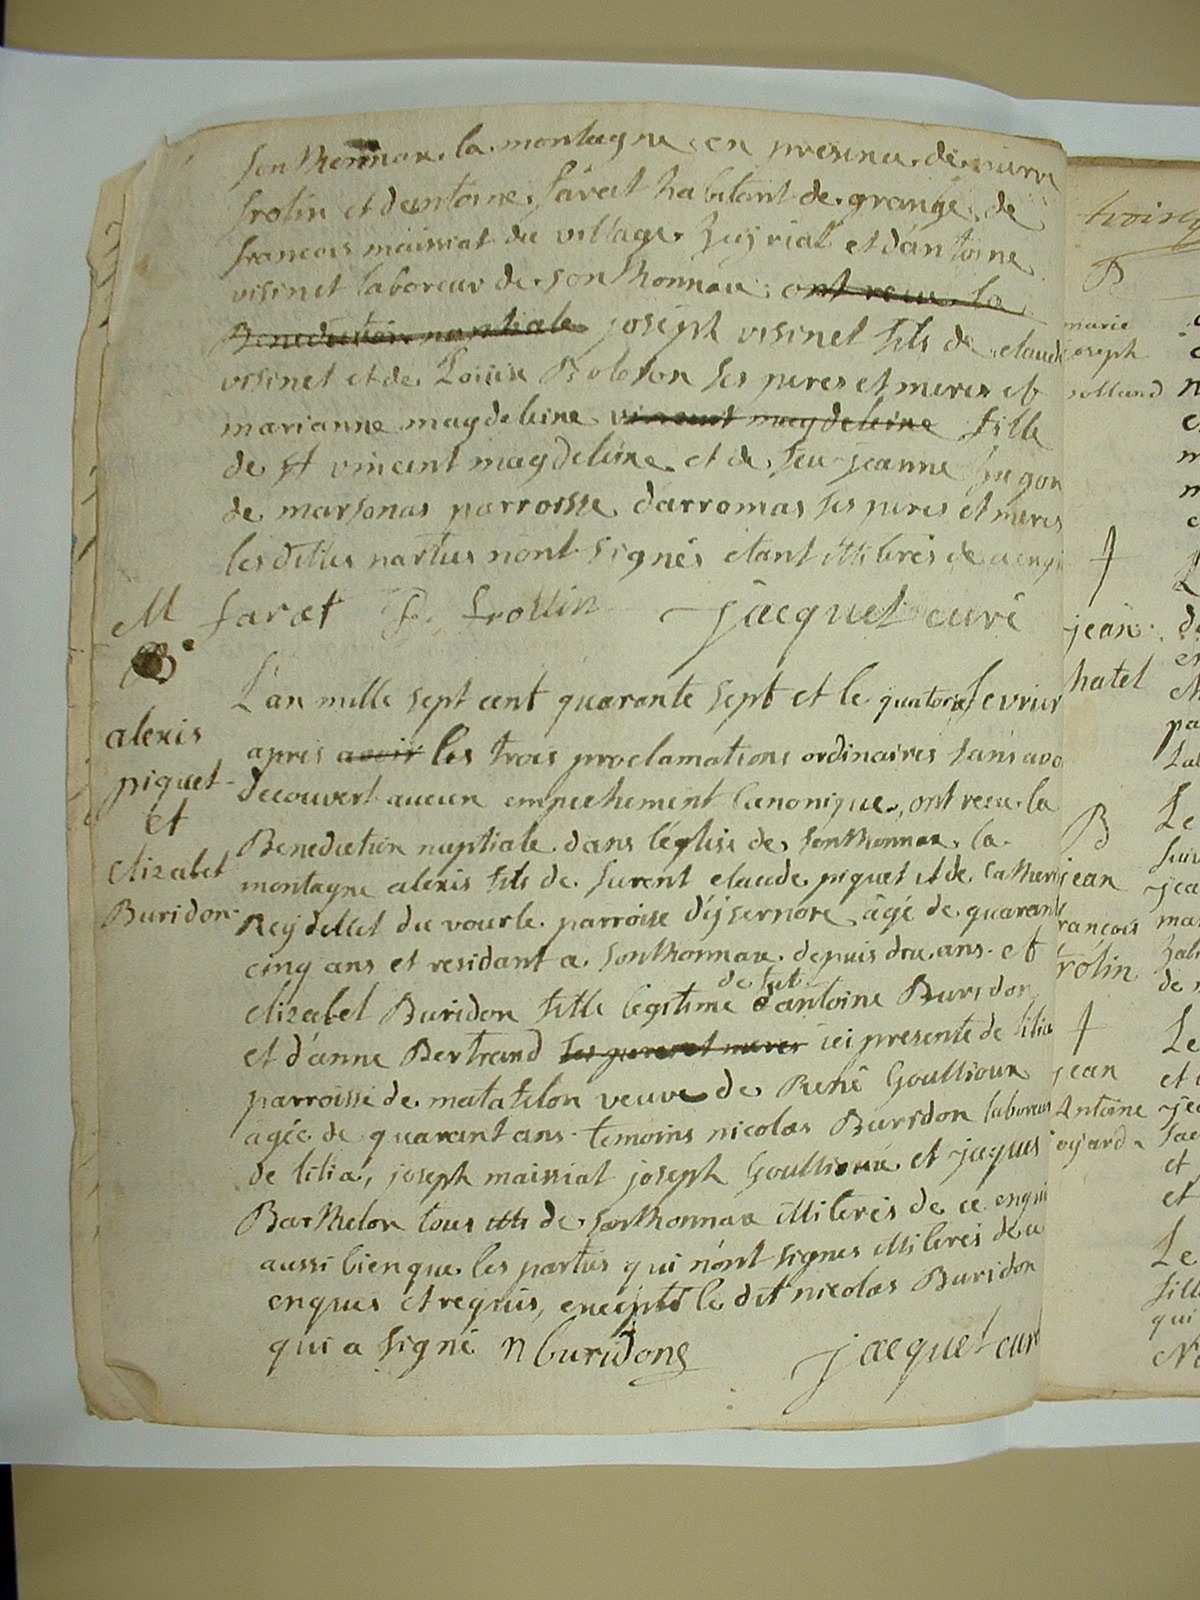 Sonthonnax la montagne en presence de pierre
frolin et d'antoine favret habitant de grange de
francois maissiat du village heyriat et d'antoine
visinet laboreur de sonthonnax ont recu la
Benediction nuptiale joseph visinet fils de claude
visinet et de Louise Bobillon ses peres et meres et
marianne magdeleine vincent magdeleine fille
de vincent magdeleine et de feu jeanne
de marsonas parroisse d'arromas ses peres et meres
les dittes parties n'ont signés etant illiterés de ce enqu
M favret P. frollin jacquet curé
B
alexis
piquet
et
elizabet
Buridon
L'an mille sept cent quarante sept et le quatorze fevrier
apres avoir les trois proclamations ordinaires sans avo
decouvert aucun empechement Canonique, ont recu la
Benediction nuptiale dans l'église de sonthonnax la
montagne alexis fils de furent claude piquet et de Catheri
Reydellet du vourle parroise d'ysernore âgé de quarant
cinq ans et residant a sonthonnax depuis dix ans et
elizabet Buridon fille legitime de fut d'antoine Buridon
et d'anne Bertrand ses peres et meres ici presente de lilia
parroisse de matafelon veuve de René Goullioux
agée de quarant ans temoins nicolas Buridon laboreur
de lilia, joseph maissiat joseph Goullioux et jaques
Barthelon tous de sonthonnax illiterés de ce enqui
aussi bien que les parties qui n'ont signés illiterés de ce
enquis et requis, excepté le dit nicolas Buridon
qui a signé n buridong jacquet curé
B
marie
joseph
rolland
†
jean
hatel
B
jean
francois
frolin
†
jean
Antoine
oyard
Le
jea
Le
et
Le
fille
qui